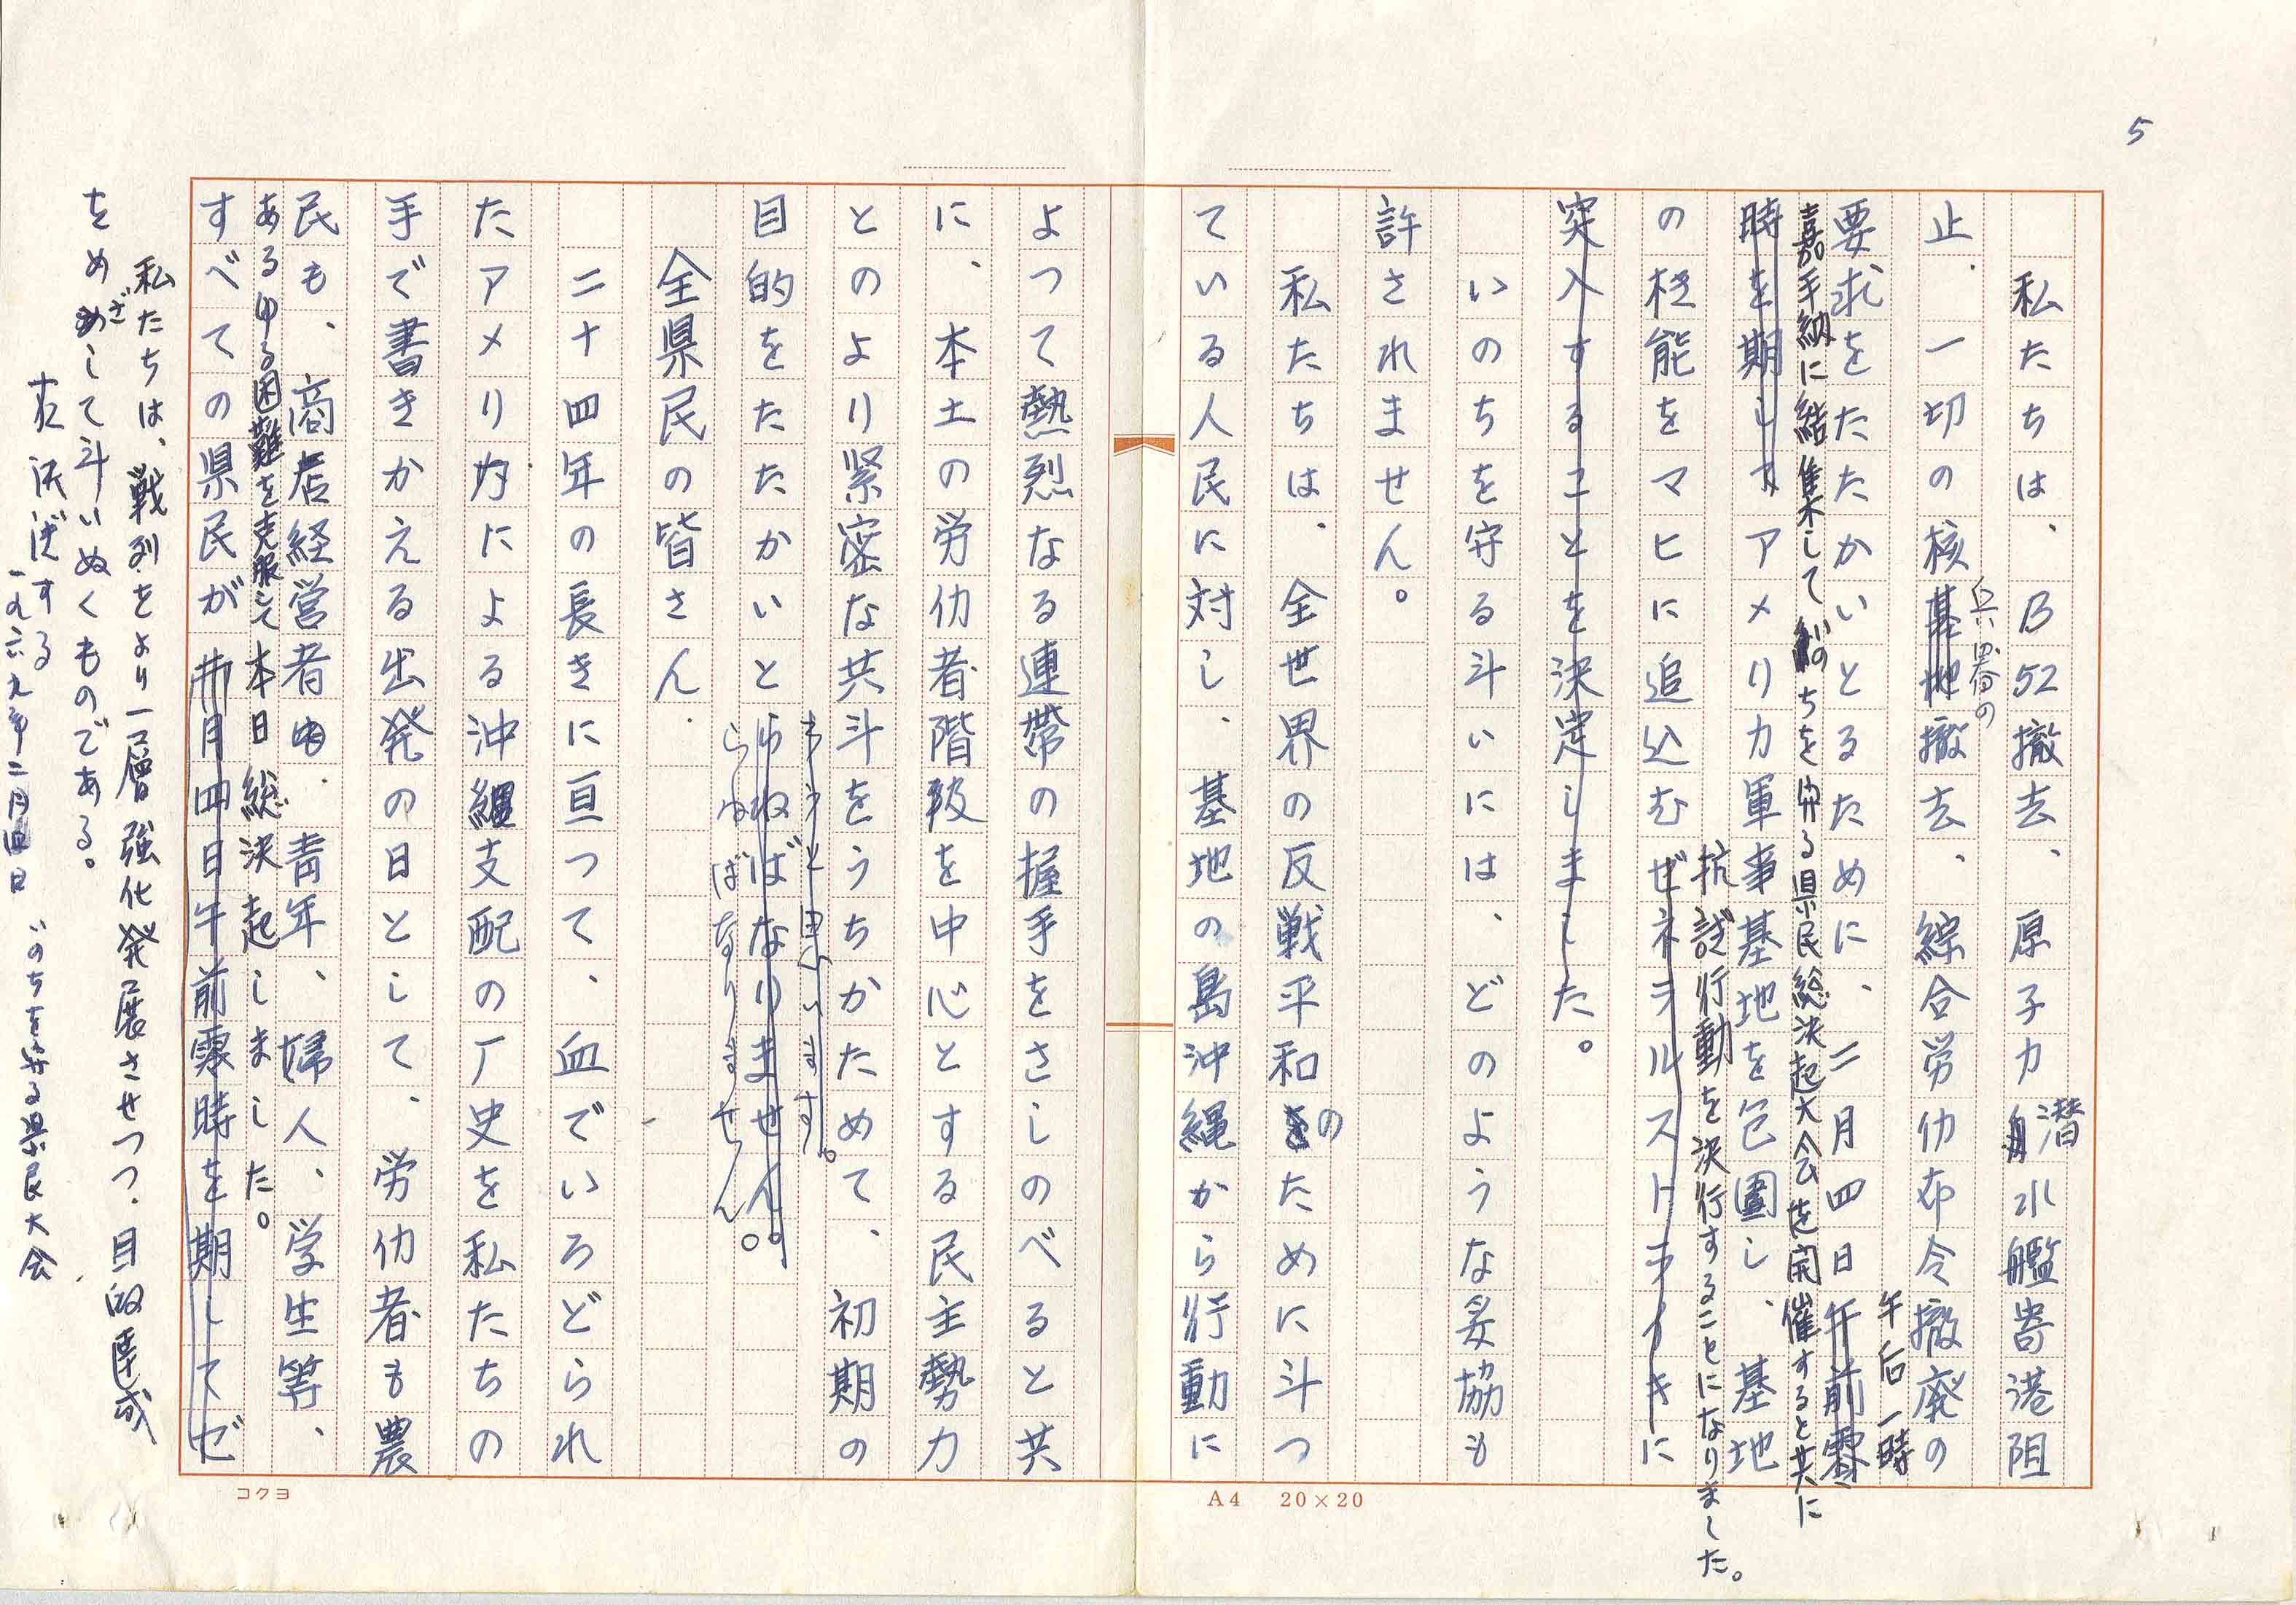 5
私たちは、B52撤去、原子力潜水艦寄港阻
止、一切の核基地撤去、綜合労仂布令撤廃の
兵器の
要求をたたかいとるために、二月四日午前零
午后一時
嘉手納に結集していのちを守る県民総決起大会を開催すると共に
時を期してアメリカ軍事基地を包囲し、基地
抗議行動を決行することになりました。
の機能をマヒに追込むゼネラルストライキに
突入することを決定しました。
いのちを守る斗いには、どのような妥協も
許されません。
私たちは、全世界の反戦平和のために斗つ
ている人民に対し、基地の島沖縄から行動に
よつて熱烈なる連帯の握手をさしのべると共
に、本土の労仂者階級を中心とする民主勢力
とのより緊密な共斗をうちかためて、初期の
目的をたたかいとらねばなりません。
全県民の皆さん、
二十四年の長きに亘つて、血でいろどられ
たアメリカによる沖縄支配の厂史を私たちの
手で書きかえる出発の日として、労仂者も農
民も、商店経営者も、青年、婦人、学生等、
あるゆる困難を克服して本日総決起しました。
すべての県民が二月四日午前零時を期してゼ
私たちは、戦列をより一層強化発展させつつ、目的達成
をめざして斗いぬくものである。
右決議する
一九六九年二月四日　いのちを守る県民大会
コクヨ
A4 20×20